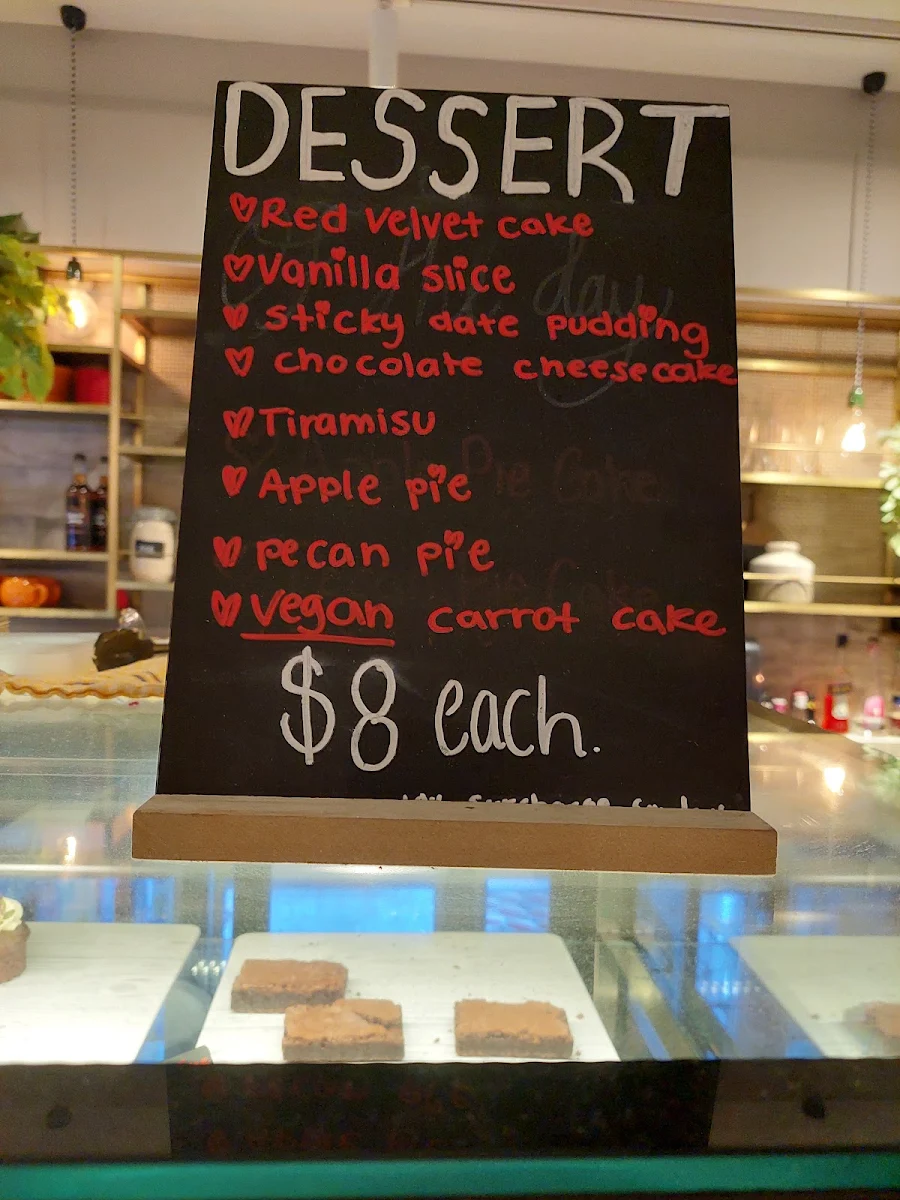 DESSERT
Red velvet cake
Vanilla slice
sticky date pudding
chocolate cheesecake
Tiramisu
Apple pie
pecan pie
vegan carrot cake
$8 each.